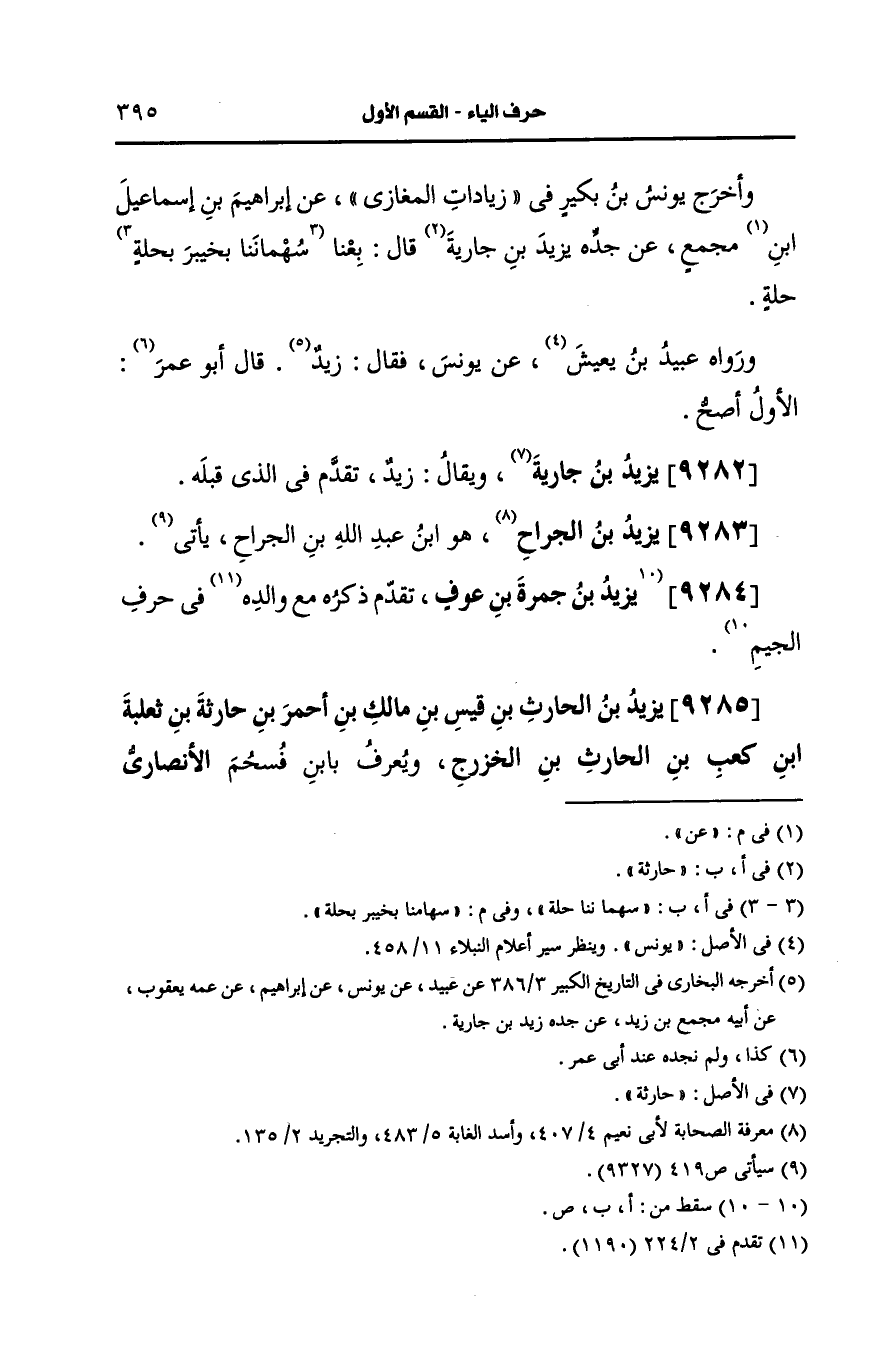 حرف الياء - القسم الأول ٣٩٥
وأخرَج يونسُ بنُ بكيرٍ فى « زياداتِ المغازى » ، عن إبراهيمَ بنِ إسماعيلَ
ابنِ(١) مجمعٍ ، عن جدِّه يزيدَ بنِ جاريةَ(٢) قال : بِعْنا (٣سُهْمانَنا بخيبرَ بحلةٍ٣)
حلةٍ .
ورَواه عبيدُ بنُ يعيشَ(٤) ، عن يونسَ ، فقال : زيدٌ(٥) . قال أبو عمرَ(٦) :
الأولُ أصحُّ .
[٩٢٨٢] يزيدُ بنُ جاريةَ(٧) ، ويقالُ : زيدٌ ، تقدَّم فى الذى قبلَه .
[٩٢٨٣] يزيدُ بنُ الجراحِ(٨) ، هو ابنُ عبدِ اللهِ بنِ الجراحِ ، يأتى(٩) .
[٩٢٨٤] (١٠يزيدُ بنُ جمرةَ بنِ عوفٍ ، تقدّم ذكرُه مع والدِه(١١) فى حرفِ
الجيمِ١٠) .
[٩٢٨٥] يزيدُ بنُ الحارثِ بنِ قيسِ بنِ مالكِ بنِ أحمرَ بنِ حارثةَ بنِ ثعلبةَ
ابنِ كعبِ بنِ الحارثِ بنِ الخزرجِ ، ويُعرفُ بابنِ فُسحُمَ الأنصارىُّ
(١) فى م : « عن » .
(٢) فى أ ، ب : « حارثة » .
(٣ - ٣) فى أ ، ب : « سهما ننا حلة » ، وفى م : « سهامنا بخيبر بحلة » .
(٤) فى الأصل : « يونس » . وينظر سير أعلام النبلاء ١١/ ٤٥٨.
(٥) أخرجه البخارى فى التاريخ الكبير ٣٨٦/٣ عن عبيد ، عن يونس ، عن إبراهيم ، عن عمه يعقوب ،
عن أبيه مجمع بن زيد ، عن جده زيد بن جارية .
(٦) كذا ، ولم نجده عند أبى عمر .
(٧) فى الأصل : « حارثة » .
(٨) معرفة الصحابة لأبى نعيم ٤/ ٤٠٧، وأسد الغابة ٥/ ٤٨٣، والتجريد ٢/ ١٣٥.
(٩) سيأتى ص٤١٩ (٩٣٢٧) .
(١٠ - ١٠) سقط من : أ ، ب ، ص .
(١١) تقدم فى ٢٢٤/٢ (١١٩٠) .